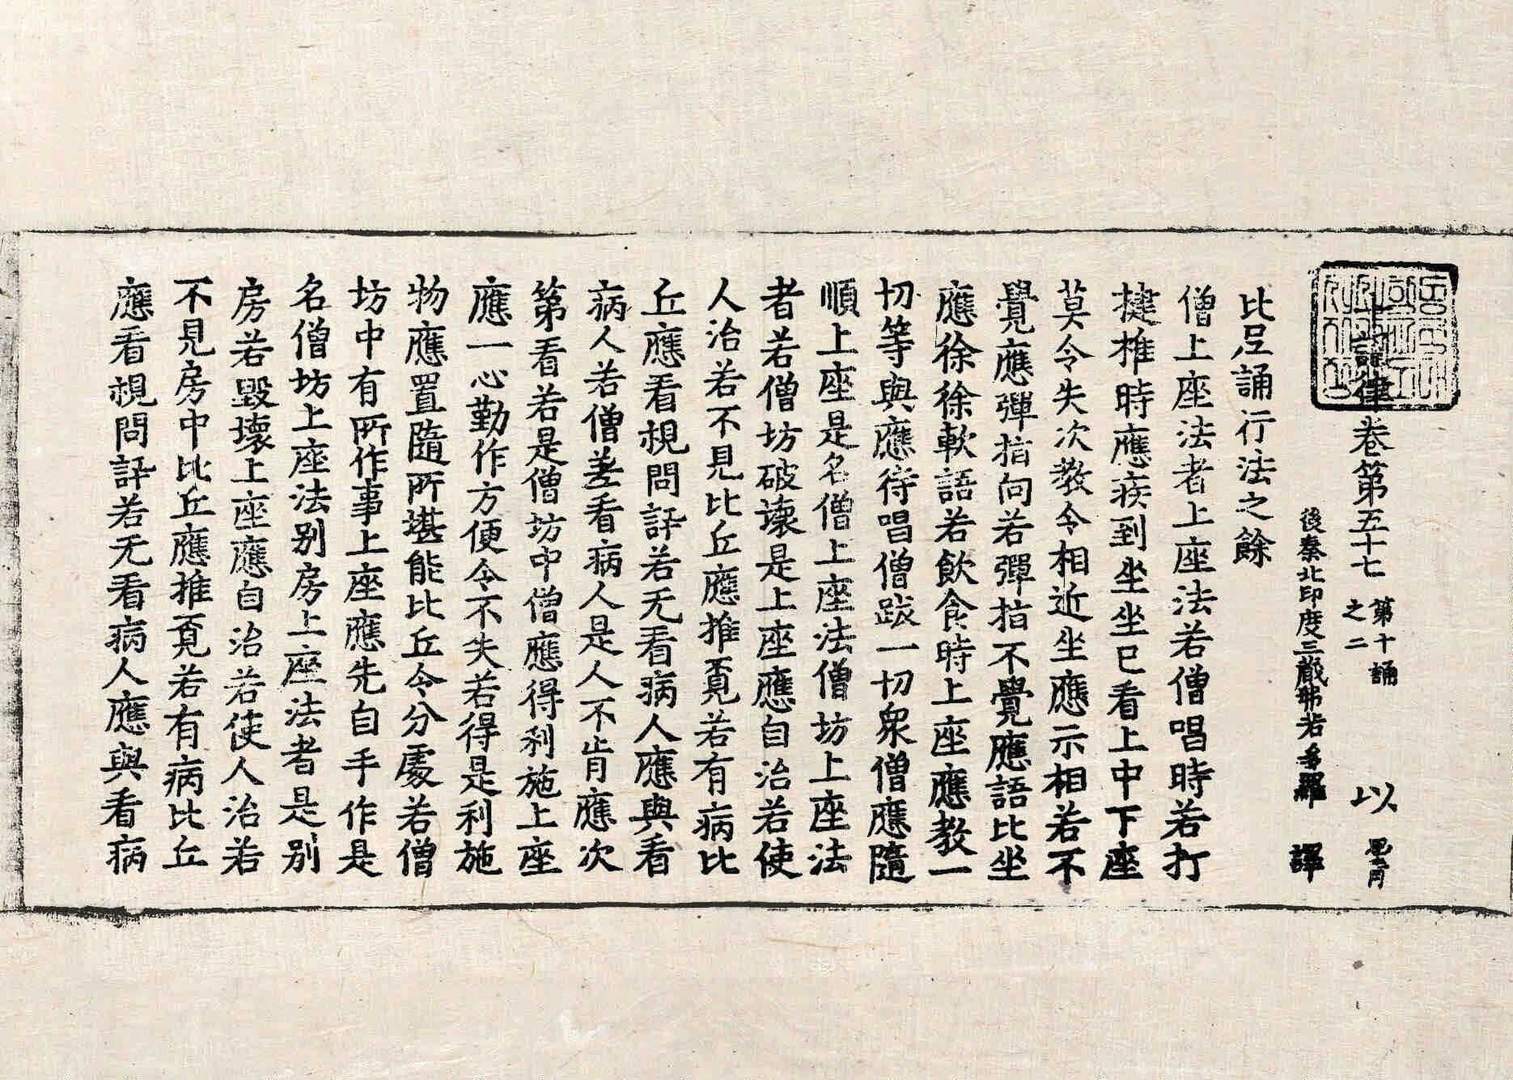 十誦律卷第五十七 第十誦之二 以
後秦北印度三藏弗若多羅 譯
比丘誦行法之餘
僧上座法者上座法若僧唱時若打
揵椎時應疾到坐坐已看上中下座
莫令失次教令相近坐應示相若不
覺應彈指向若彈指不覺應語比坐
應徐徐軟語若飲食時上座應教一
切等與應待唱僧跋一切衆僧應隨
順上座是名僧上座法僧坊上座法
者若僧坊破壞是上座應自治若使
人治若不見比丘應推覓若有病比
丘應看視問訊若无看病人應與看
病人若僧差看病人是人不肯應次
第看若是僧坊中僧應得利施上座
應一心勤作方便令不失若得是利施
物應置隨所堪能比丘令分處若僧
坊中有所作事上座應先自手作是
名僧坊上座法別房上座法者是別
房若毀壞上座應自治若使人治若
不見房中比丘應推覓若有病比丘
應看視問訊若无看病人應與看病